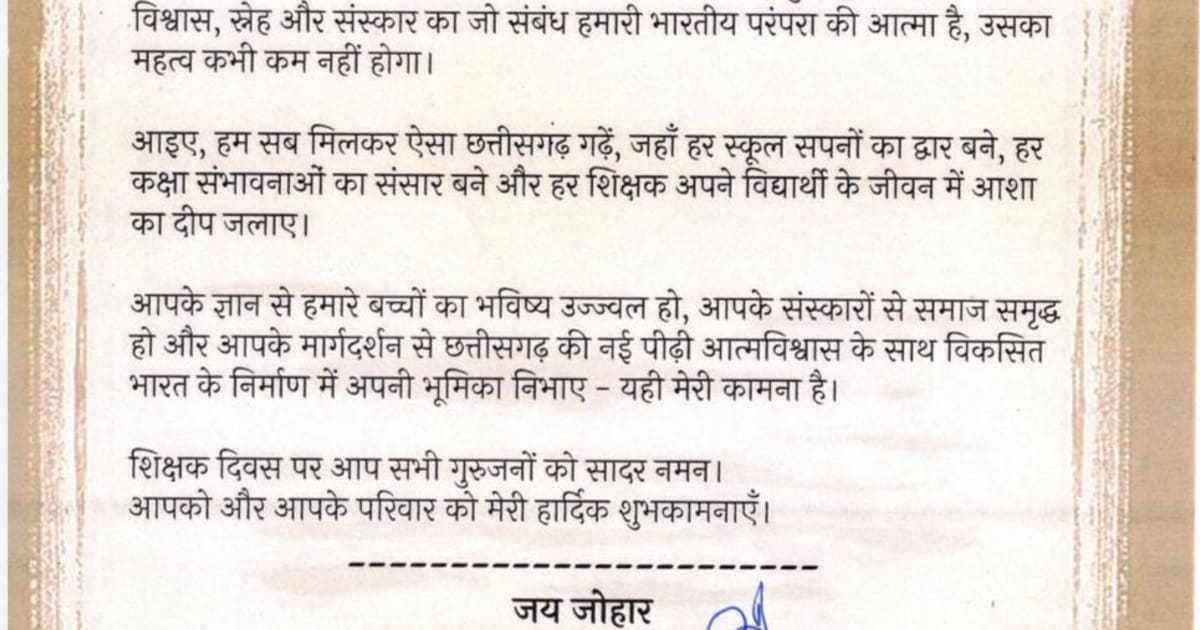 विश्वास, स्नेह और संस्कार का जो संबंध हमारी भारतीय परंपरा की आत्मा है, उसका
महत्व कभी कम नहीं होगा।
आइए, हम सब मिलकर ऐसा छत्तीसगढ़ गढ़ें, जहाँ हर स्कूल सपनों का द्वार बने, हर
कक्षा संभावनाओं का संसार बने और हर शिक्षक अपने विद्यार्थी के जीवन में आशा
का दीप जलाए।
आपके ज्ञान से हमारे बच्चों का भविष्य उज्ज्वल हो, आपके संस्कारों से समाज समृद्ध
हो और आपके मार्गदर्शन से छत्तीसगढ़ की नई पीढ़ी आत्मविश्वास के साथ विकसित
भारत के निर्माण में अपनी भूमिका निभाए – यही मेरी कामना है।
शिक्षक दिवस पर आप सभी गुरुजनों को सादर नमन।
आपको और आपके परिवार को मेरी हार्दिक शुभकामनाएँ।
------------------------
जय जोहार